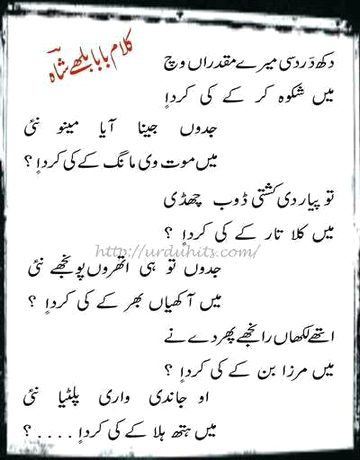 کلام بابا بلھے شاہ
دکھ درد سی میرے مقدراں وچ
میں شکوہ کر کے کی کردا
جدوں جینا آیا مینو نئی
میں موت وی مانگ کے کی کردا ؟
تو پیار دی کشتی ڈوب چھڈی
میں کلا تار کے کی کردا ؟
http://urduhits.com/
جدوں تو ہی اتھروں پونجھے نئی
میں آکھیاں بھر کے کی کردا ؟
اتھے لکھاں رانجھے پھردے نے
میں مرزا بن کے کی کردا ؟
او جاندی واری پلٹیا نئی
میں ہتھ ہلا کے کی کردا . . . . ؟